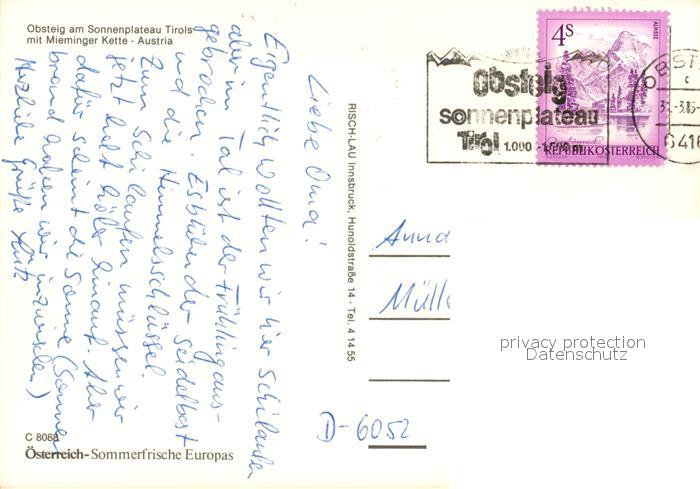 Obsteig am Sonnenplateau Tirols
mit Mieminger Kette - Austria
Liebe Oma!
Eigentlich wollten wir hier Schilaufen
aber im Tal ist der Frühling aus-
gebrochen. Es blühen der Seidelbast
und die Himmelsschlüssel.
Zum Schilaufen müssen wir
jetzt halt höher hinauf. Aber
dafür scheint die Sonne (Sonnen
brand haben wir inzwischen)
Herzliche Grüße
C 8088
Österreich-Sommerfrische Europas
RISCH-LAU Innsbruck, Hunoldstraße 14 - Tel. 4 14 55
obsteig
sonnenplateau
Tirol 1.000 - 1.500 m
4S
ALMSEE
REPUBLIK ÖSTERREICH
OBST
c
6416
Anna
Mülle
D-6052
privacy protection
Datenschutz